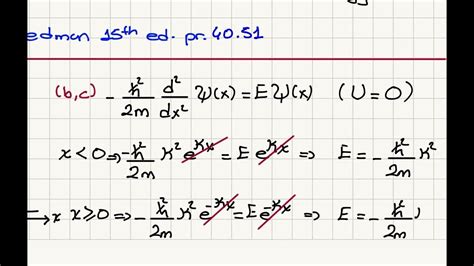 edman 15th ed. pr. 40.51
(b,c) -ℏ²/2m d²/dx² Ψ(x) = E Ψ(x) (U = 0)
x < 0 ⇒ -ℏ²/2m K² e^{Kx} = E e^{Kx} ⇒ E = -ℏ²/2m K²
→ x x ≥ 0 ⇒ -ℏ²/2m K² e^{-Kx} = E e^{-Kx} ⇒ E = -ℏ²/2m